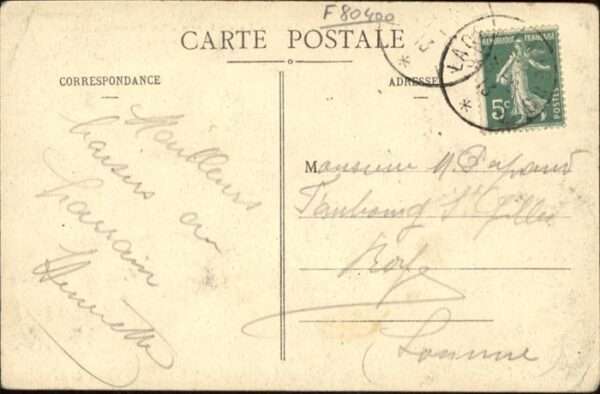 F 80400
CARTE POSTALE
CORRESPONDANCE
ADRESSE
REPUBLIQUE FRANÇAISE
5c
POSTES
Meilleurs
baisers au
parrain
Henriette
Monsieur M.
Faubourg St Gilles
Roye
(Somme)